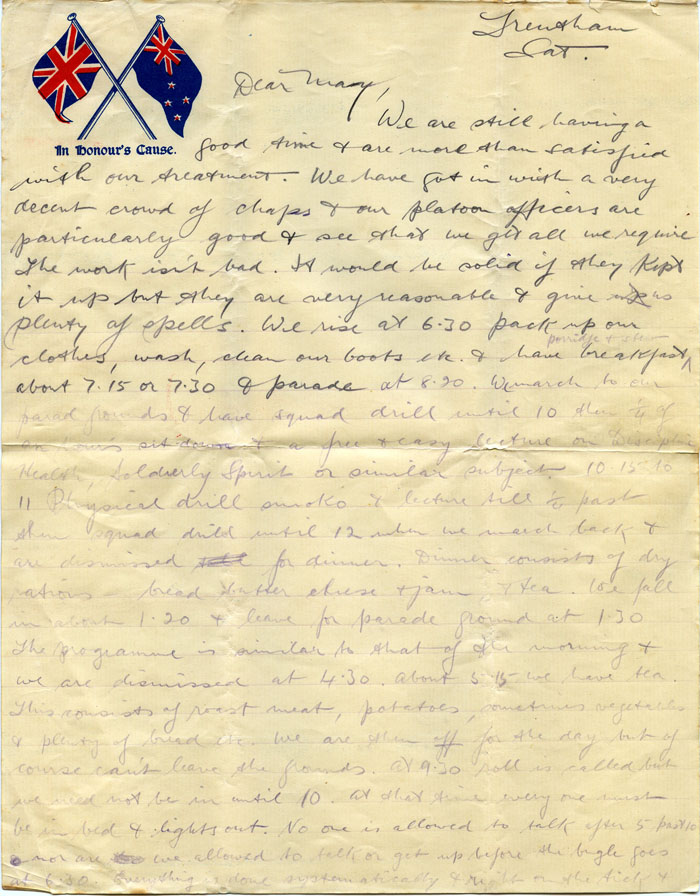 In Honour's Cause.
Trentham
Sat.
Dear May,
We are still having a
good time & are more than satisfied
with our treatment. We have got in with a very
decent crowd of chaps & our platoon officers are
particularly good & see that we get all we require
The work isn't bad. It would be solid if they kept
it up but they are very reasonable & give us
plenty of spells. We rise at 6.30 pack up our
porridge & stew
clothes, wash, clean our boots etc. & have breakfast,
about 7.15 or 7.30 & parade at 8.20. We march to our
parad grounds & have squad drill until 10 then ¼ of
an hour's sit down & a free & easy lecture on Discipline
Health, Soldierly Spirit or similar subject. 10.15 to
11 Physical drill smoko & lecture till ½ past
then squad drill until 12 when we march back &
are dismissed for dinner. Dinner consists of dry
rations - bread butter cheese & jam, & tea. We fall
in about 1.20 & leave for parade ground at 1.30
The programme is similar to that of the morning &
we are dismissed at 4.30. About 5.15 we have tea.
This consists of roast meat, potatoes, sometimes vegetables
& plenty of bread etc. We are then off for the day but of
course can't leave the grounds. At 9.30 roll is called but
we need not be in until 10. At that time every one must
be in bed & lights out. No one is allowed to talk after 5 past 10
nor are we allowed to talk or get up before the bugle goes
at 6.30. Everything is done systematically & right on the tick &